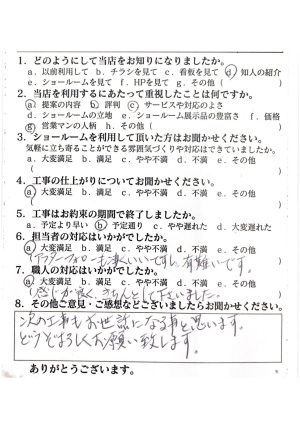 1. どのようにして当店をお知りになりましたか。
a. 以前利用して b. チラシを見て c. 看板を見て d. 知人の紹介
e. ショールームを見て f. HPを見て g. その他( )
2. 当店を利用するにあたって重視したことは何ですか。
a. 提案の内容 b. 評判 c. サービスや対応のよさ
d. ショールームの立地 e. ショールーム展示品の豊富さ f. 価格
g. 営業マンの人柄 h. その他( )
3. ショールームを利用して頂いた方はお聞かせください。
気軽に立ち寄ることができる雰囲気づくりや対応はできていましたか。
a. 大変満足 b. 満足 c. やや不満 d. 不満 e. その他
( )
4. 工事の仕上がりについてお聞かせください。
a. 大変満足 b. 満足 c. やや不満 d. 不満 e. その他
( )
5. 工事はお約束の期間で終了しましたか。
a. 予定より早い b. 予定通り c. やや遅れた d. 大変遅れた
6. 担当者の対応はいかがでしたか。
a. 大変満足 b. 満足 c. やや不満 d. 不満 e. その他
(アフターフォローも凄くいいですし、有難いです。)
7. 職人の対応はいかがでしたか。
a. 大変満足 b. 満足 c. やや不満 d. 不満 e. その他
(感じが良く、きちんとして下さいました。)
8. その他ご意見・ご感想などございましたらお聞かせください。
次の工事もお世話になる事と思います。
どうぞよろしくお願い致します。
ありがとうございます。